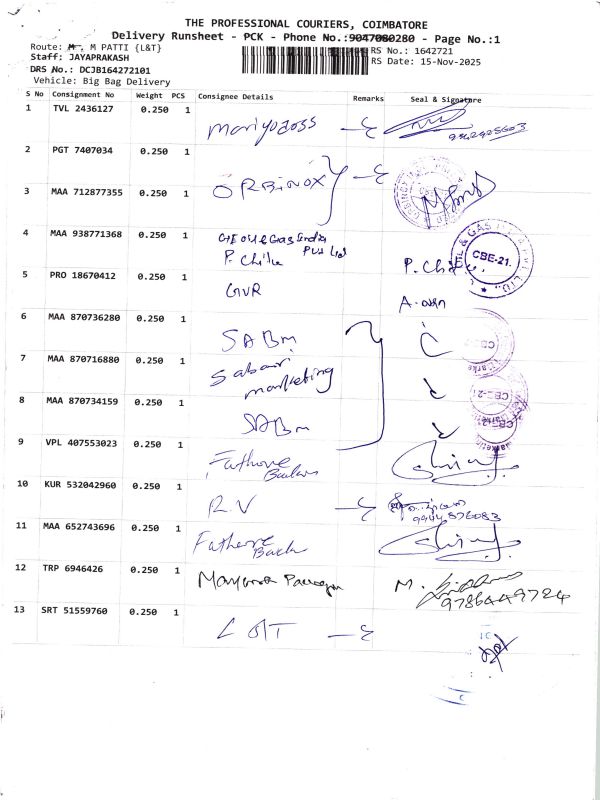 THE PROFESSIONAL COURIERS, COIMBATORE
Delivery Runsheet - PCK - Phone No.:9047080280 - Page No.:1
Route: M PATTI {L&T}
RS No.: 1642721
Staff: JAYAPRAKASH
RS Date: 15-Nov-2025
DRS No.: DCJB164272101
Vehicle: Big Bag Delivery
S No Consignment No Weight PCS Consignee Details Remarks Seal & Signature
1 TVL 2436127 0.250 1 Mariyodoss
2 PGT 7407034 0.250 1
3 MAA 712877355 0.250 1 ORBINOX
4 MAA 938771368 0.250 1 Oil & Gas India Pvt Ltd
P. Chitu P. Chi CBE-21.
5 PRO 18670412 0.250 1 GVR
6 MAA 870736280 0.250 1 SABM
7 MAA 870716880 0.250 1 Sabari marketing
8 MAA 870734159 0.250 1 SABM
9 VPL 407553023 0.250 1
10 KUR 532042960 0.250 1 R.V 9944576083
11 MAA 652743696 0.250 1
12 TRP 6946426 0.250 1 M. 9786449724
13 SRT 51559760 0.250 1